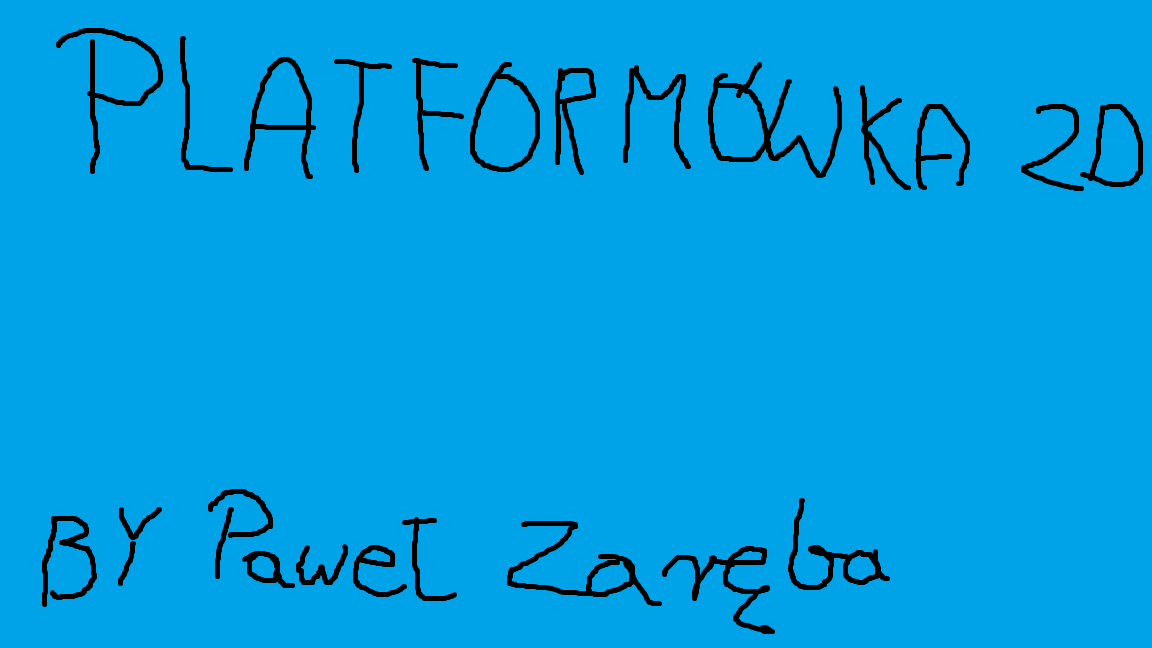 PLATFORMÓWKA 2D
BY Paweł Zaręba